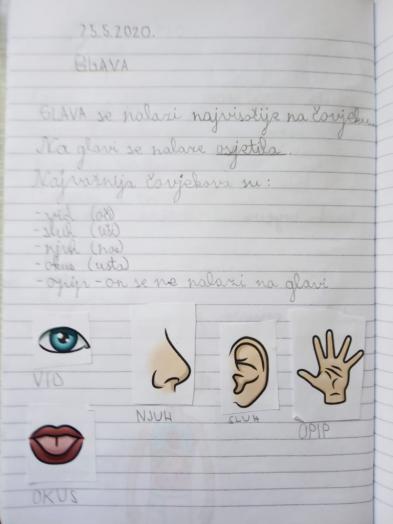 25.5.2020.
GLAVA
GLAVA se nalazi najvisočije na čovjeku.
Na glavi se nalaze osjetila.
Najvažnija čovjekova su:
- vid (oči)
- sluh (uši)
- njuh (nos)
- okus (usta)
- opip - on se ne nalazi na glavi
VID
NJUH
SLUH
OPIP
OKUS